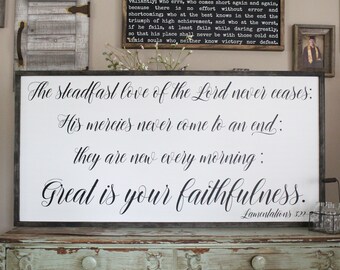 valiantly; who errs, who comes short again and again,
because there is no effort without error and
shortcoming; who at the best knows in the end the
triumph of high achievement, and who at the worst
if he fails, at least fails while daring greatly,
so that his place shall never be with those cold and
timid souls who neither know victory nor defeat.
The steadfast love of the Lord never ceases:
His mercies never come to an end:
they are new every morning:
Great is your faithfulness.
Lamentations 3:22